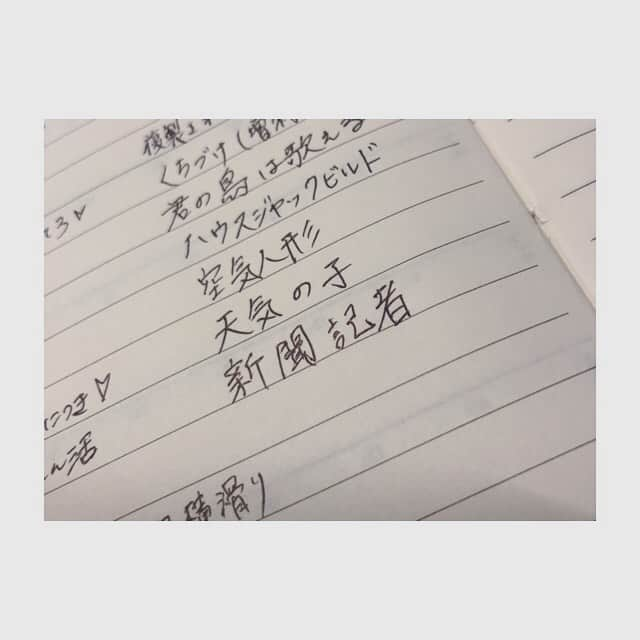 複製
くちづけ(増村
君の鳥は歌える
ハウスジャックビルド
空気人形
天気の子
新聞記者
ろ♡
につき♡
ん活
横滑り